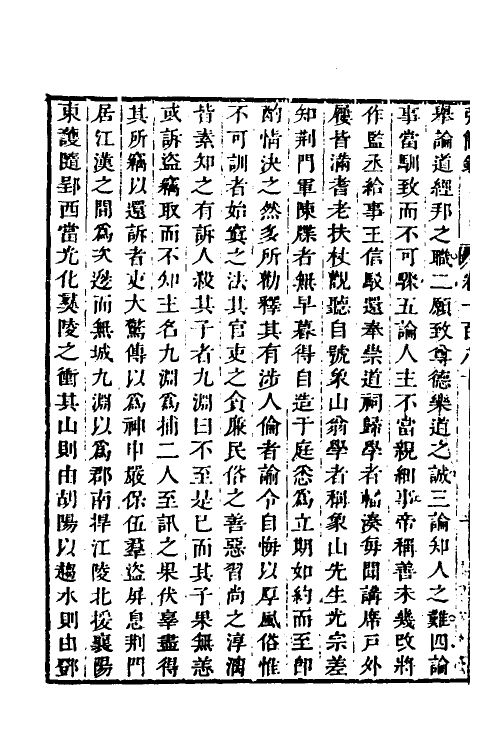 弘簡錄 卷一百八十
舉論道經邦之職二願致尊德樂道之誠三論知人之難四論
事當馴致而不可驟五論人主不當親細事帝稱善未幾改將
作監丞給事王信駁還奉崇道祠歸學者輻湊每開講席戶外
屨皆滿耆老扶杖觀聽自號象山翁學者稱象山先生光宗差
知荆門軍陳牒者無早暮得自造于庭悉爲立期如約而至卽
酌情決之然多所勸釋其有涉人倫者諭令自悔以厚風俗惟
不可訓者始寘之法其官吏之貪廉民俗之善惡習尚之淳漓
皆素知之有訴人殺其子者九淵曰不至是已而其子果無恙
或訴盜竊取而不知主名九淵爲捕二人至訊之果伏辜盡得
其所竊以還訴者吏大驚傳以爲神申嚴保伍羣盜屏息荆門
居江漢之間爲次邊而無城九淵以爲郡南捍江陵北援襄陽
東護隨郢西當光化夷陵之衝其山則由胡陽以趨水則由鄧